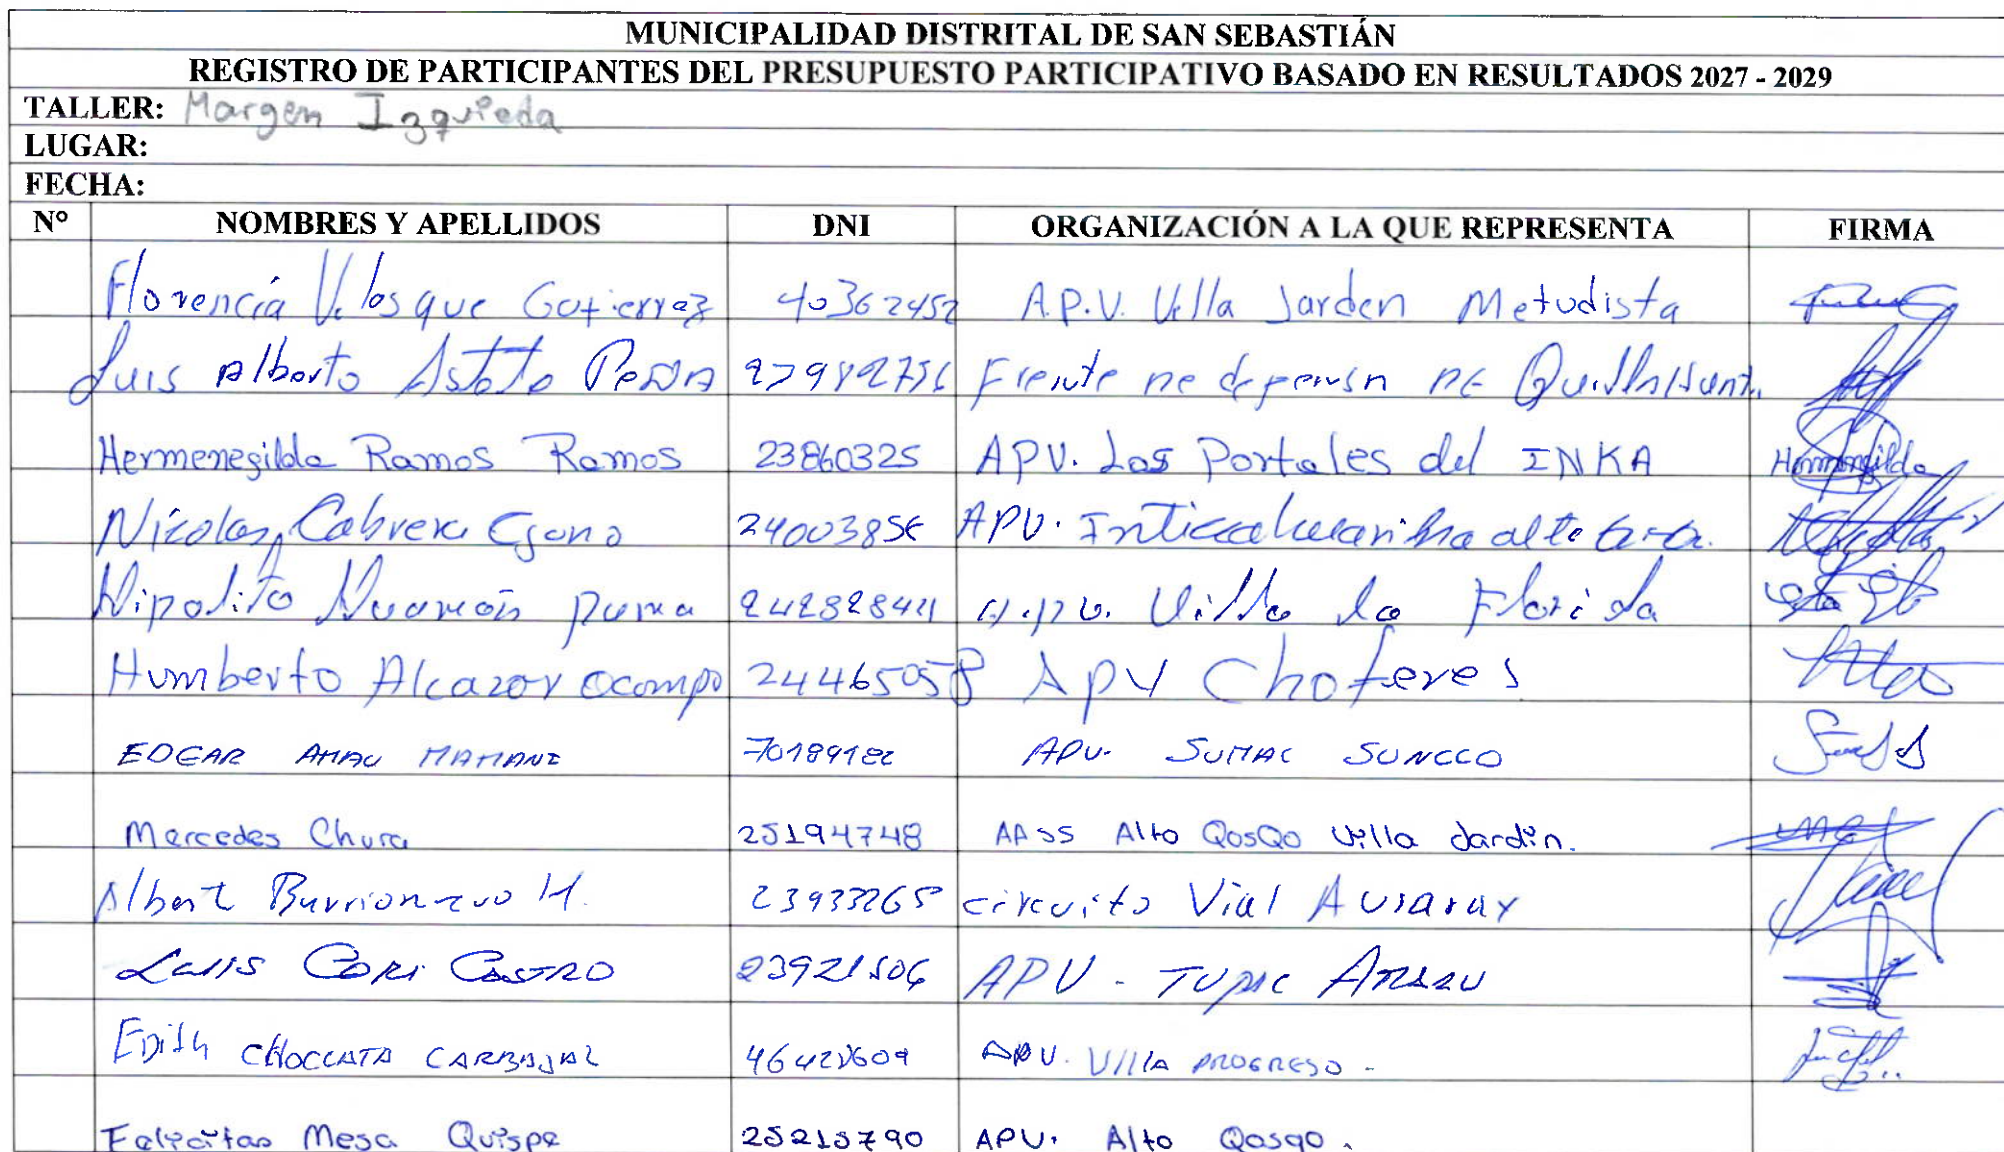 MUNICIPALIDAD DISTRITAL DE SAN SEBASTIÁN
REGISTRO DE PARTICIPANTES DEL PRESUPUESTO PARTICIPATIVO BASADO EN RESULTADOS 2027 - 2029
TALLER: Margen Izquieda
LUGAR:
FECHA:
N° NOMBRES Y APELLIDOS DNI ORGANIZACIÓN A LA QUE REPRESENTA FIRMA
Florencia Velasque Gutierrez 40362452 A.P.V. Villa Jarden Metudista
Luis Alberto Astete Peña Frente de defensa de
Hermenegilda Ramos Ramos 23860325 APV. Los Portales del INKA Hermenegilda
Nicolas Cabrera 24003856 APV.
Hipolito Huaman puma A.p.v. Villa la Florida
Humberto Alcazar Ocampo 24465058 APV Choferes
EDGAR AMAU MAMANI APV. SUMAC SONCCO
Mercedes Chura 25194748 AASS Alto QosQo Villa Jardin.
Albert H. 23933265 circuito Vial
Luis CORI CASTRO 23921506 APV - TUPAC AMARU
Edith CHOCCATA CARBAJAL APV. Villa PROGRESO -
Felicitas Mesa Quispe 25215790 APV. Alto Qosqo.